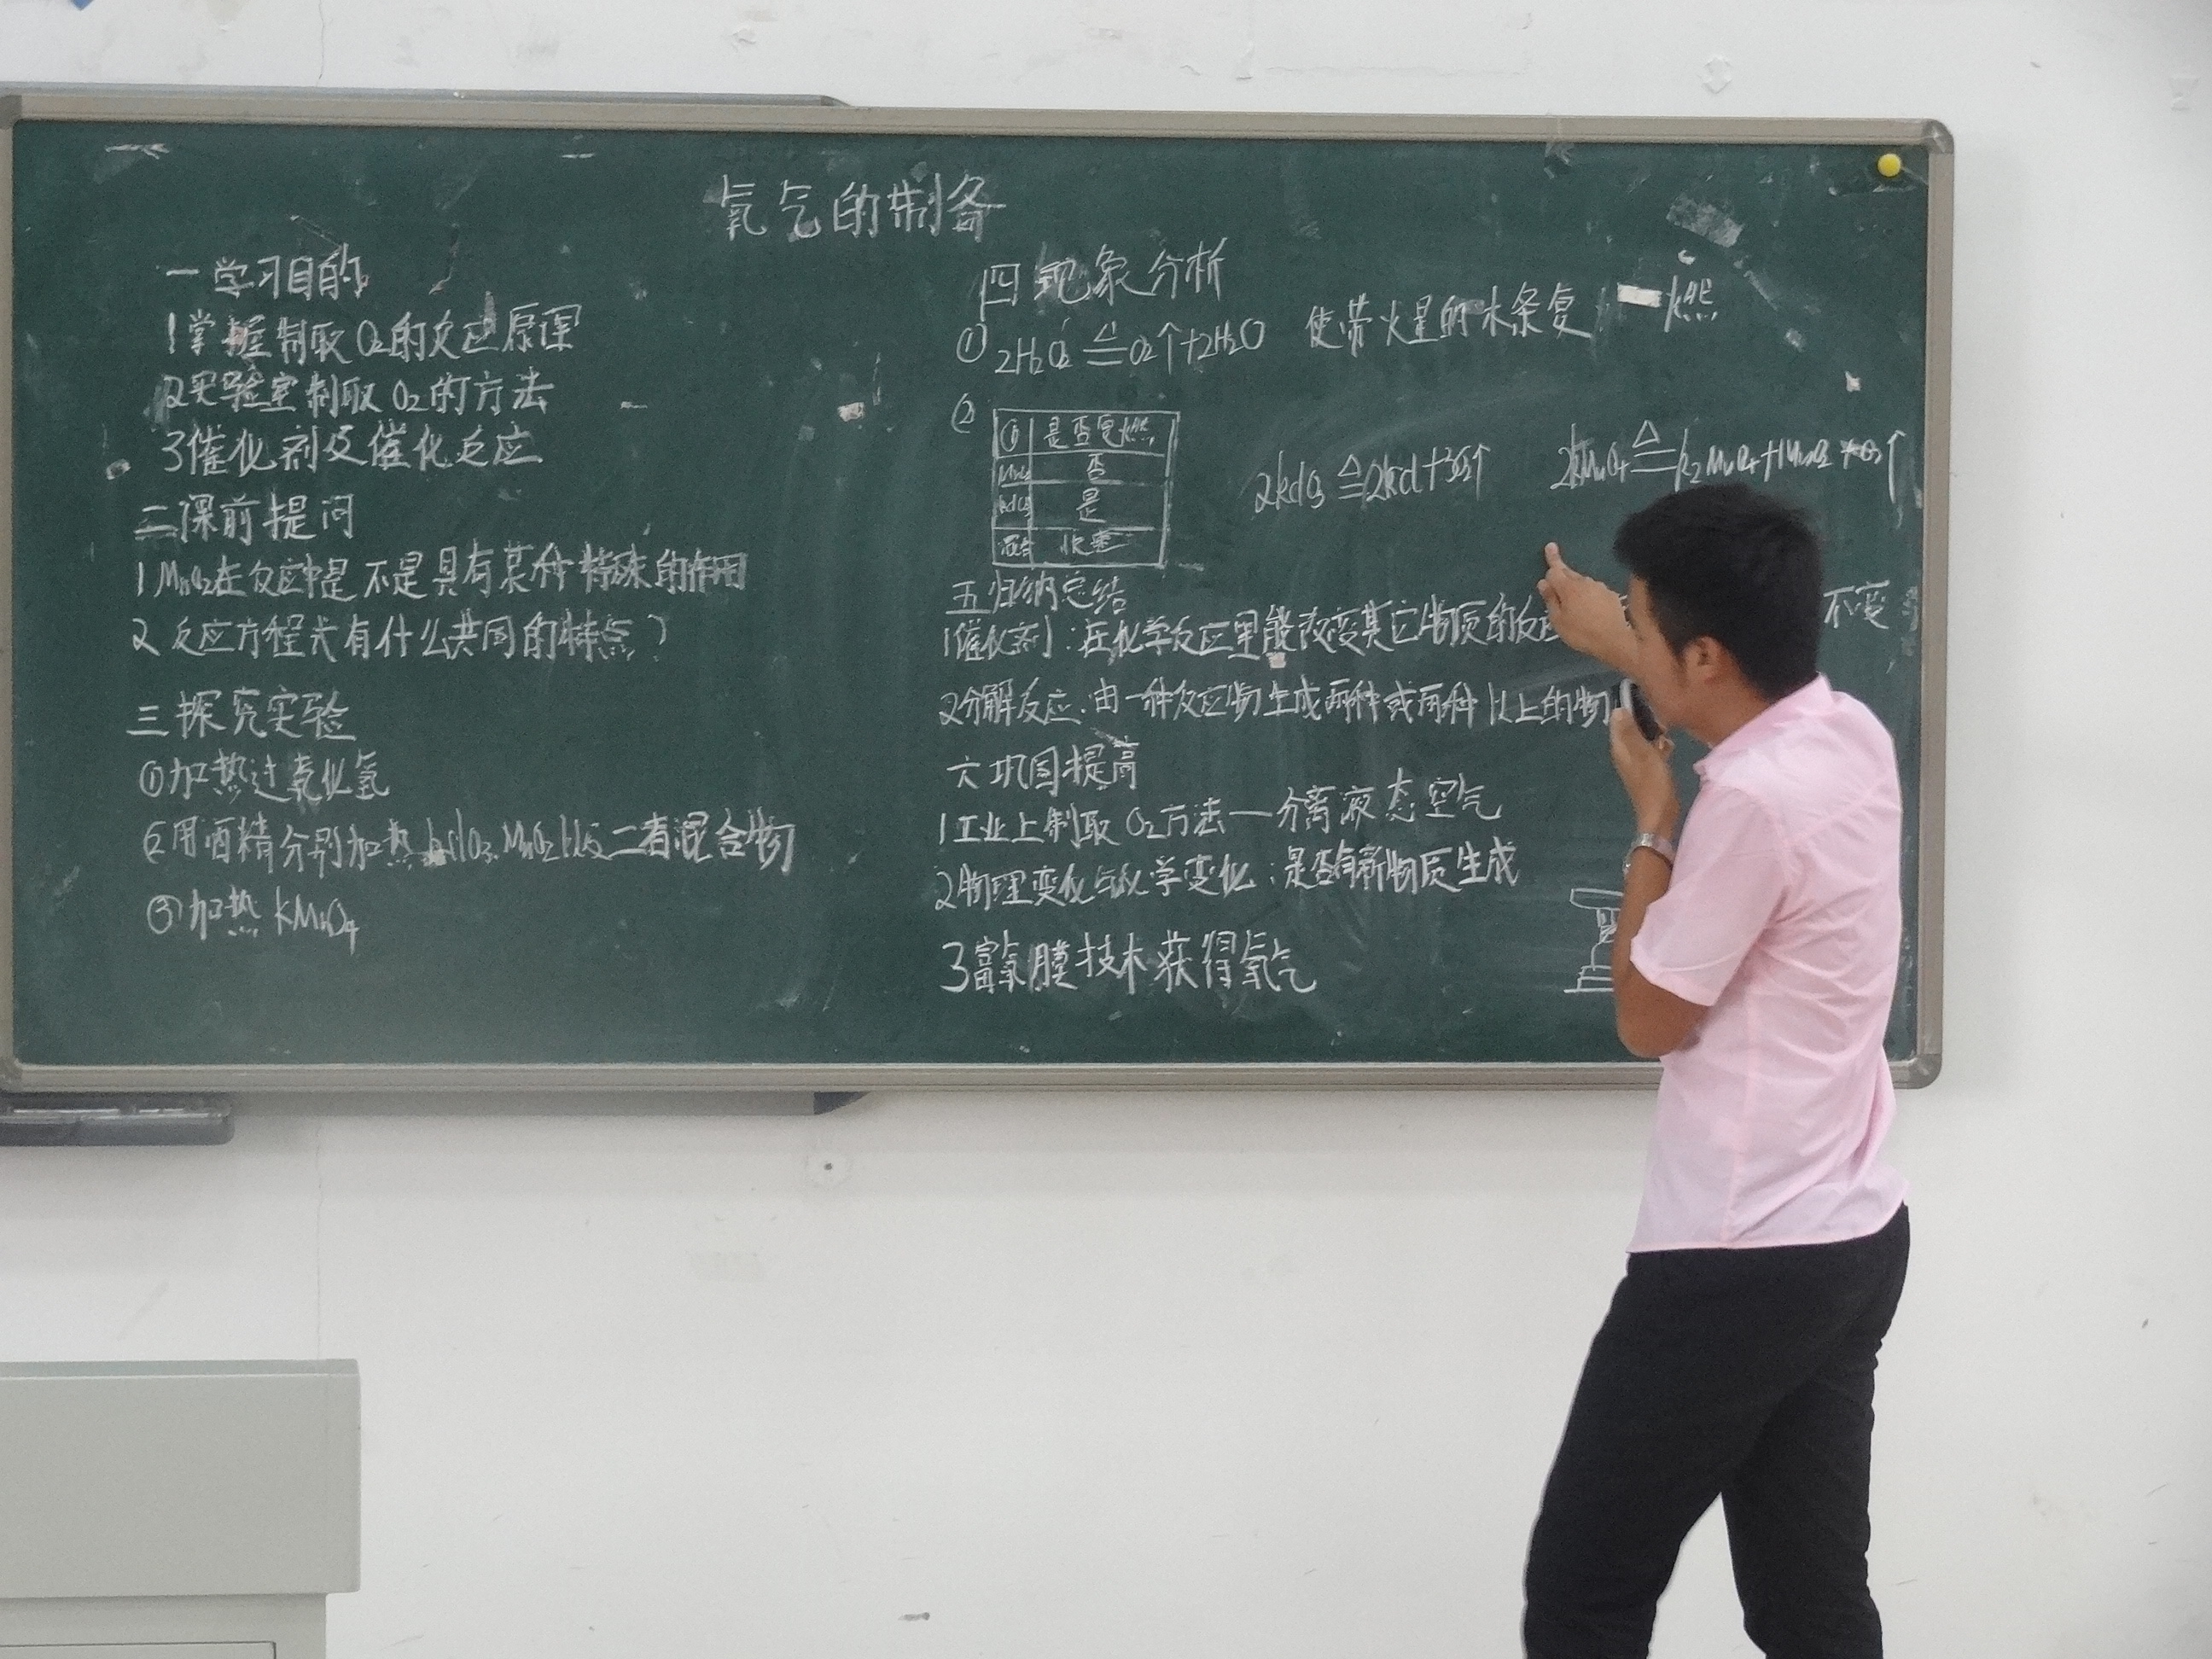 氧气的制备
一 学习目的
1 掌握制取 O₂的反应原理
2 实验室制取 O₂的方法
3 催化剂及催化反应
二 课前提问
1 MnO₂在反应中是不是具有某种特殊的作用
2 反应方程式有什么共同的特点?
三 探究实验
①加热过氧化氢
②用酒精分别加热 kclO₃ MnO₂以及二者混合物
③加热 kMnO₄
四 现象分析
① 2H₂O₂ ≜ O₂↑+2H₂O 使带火星的木条复燃
②
① 是否复燃
MnO₂ 否
kclO₃ 是
混合 快速
2kclO₃ ≜ 2kcl+3O₂↑ 2kMnO₄ ≜ k₂MnO₄+MnO₂+O₂↑
五 归纳总结
1 催化剂:在化学反应里能改变其它物质的反应 不变
2 分解反应:由一种反应物生成两种或两种以上的物
六 巩固提高
1 工业上制取 O₂方法—分离液态空气
2 物理变化与化学变化:是否有新物质生成
3 富氧膜技术获得氧气